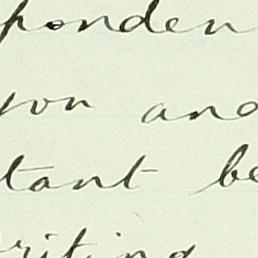 ponden
you and
tant be
riting